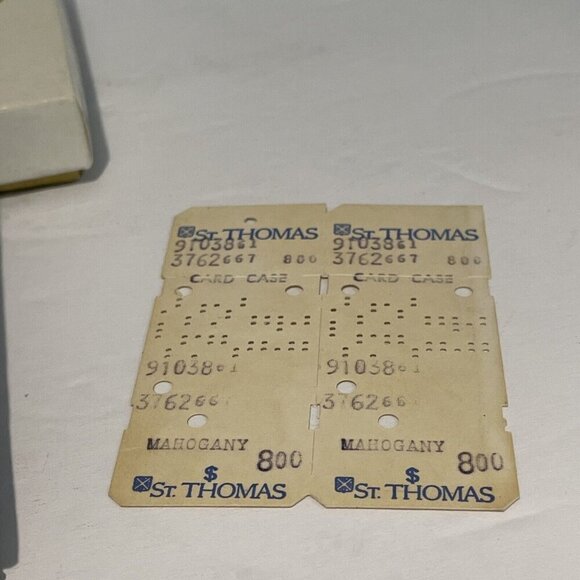 ST. THOMAS
9103861
3762667 800
CARD CASE
9103861
376266
MAHOGANY 800
$
ST. THOMAS
ST. THOMAS
9103861
3762667 800
CARD CASE
9103861
376266
MAHOGANY 800
$
ST. THOMAS